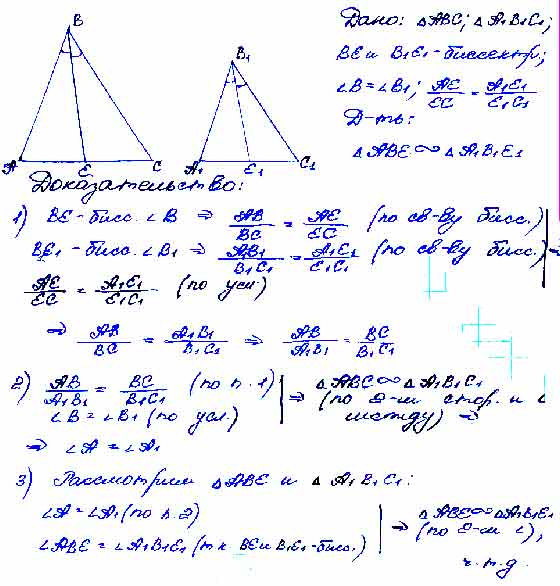 B
B₁
A
E
C
A₁
E₁
C₁
Дано: △ABC; △A₁B₁C₁;
BE и B₁E₁ - биссектр;
∠B = ∠B₁; AE/EC = A₁E₁/E₁C₁
Д-ть:
△ABE ∞ △A₁B₁E₁
Доказательство:
1) BE - бисс. ∠B ⇒ AB/BC = AE/EC (по св-ву бисс.)
BE₁ - бисс. ∠B₁ ⇒ AB₁/B₁C₁ = A₁E₁/E₁C₁ (по св-ву бисс.) ⇒
AE/EC = A₁E₁/E₁C₁ - (по усл)
⇒ AB/BC = A₁B₁/B₁C₁ ⇒ AB/A₁B₁ = BC/B₁C₁
2) AB/A₁B₁ = BC/B₁C₁ (по п. 1)
∠B = ∠B₁ (по усл.)
⇒ △ABC ∞ △A₁B₁C₁
(по 2-м стор. и ∠
между) ⇒
⇒ ∠A = ∠A₁
3) Рассмотрим △ABE и △A₁B₁C₁:
∠A = ∠A₁ (по п.2)
∠ABE = ∠A₁B₁E₁ (т.к. BE и B₁E₁ - бис.)
⇒ △ABE ∞ △A₁B₁E₁
(по 2-м ∠),
ч.т.д.